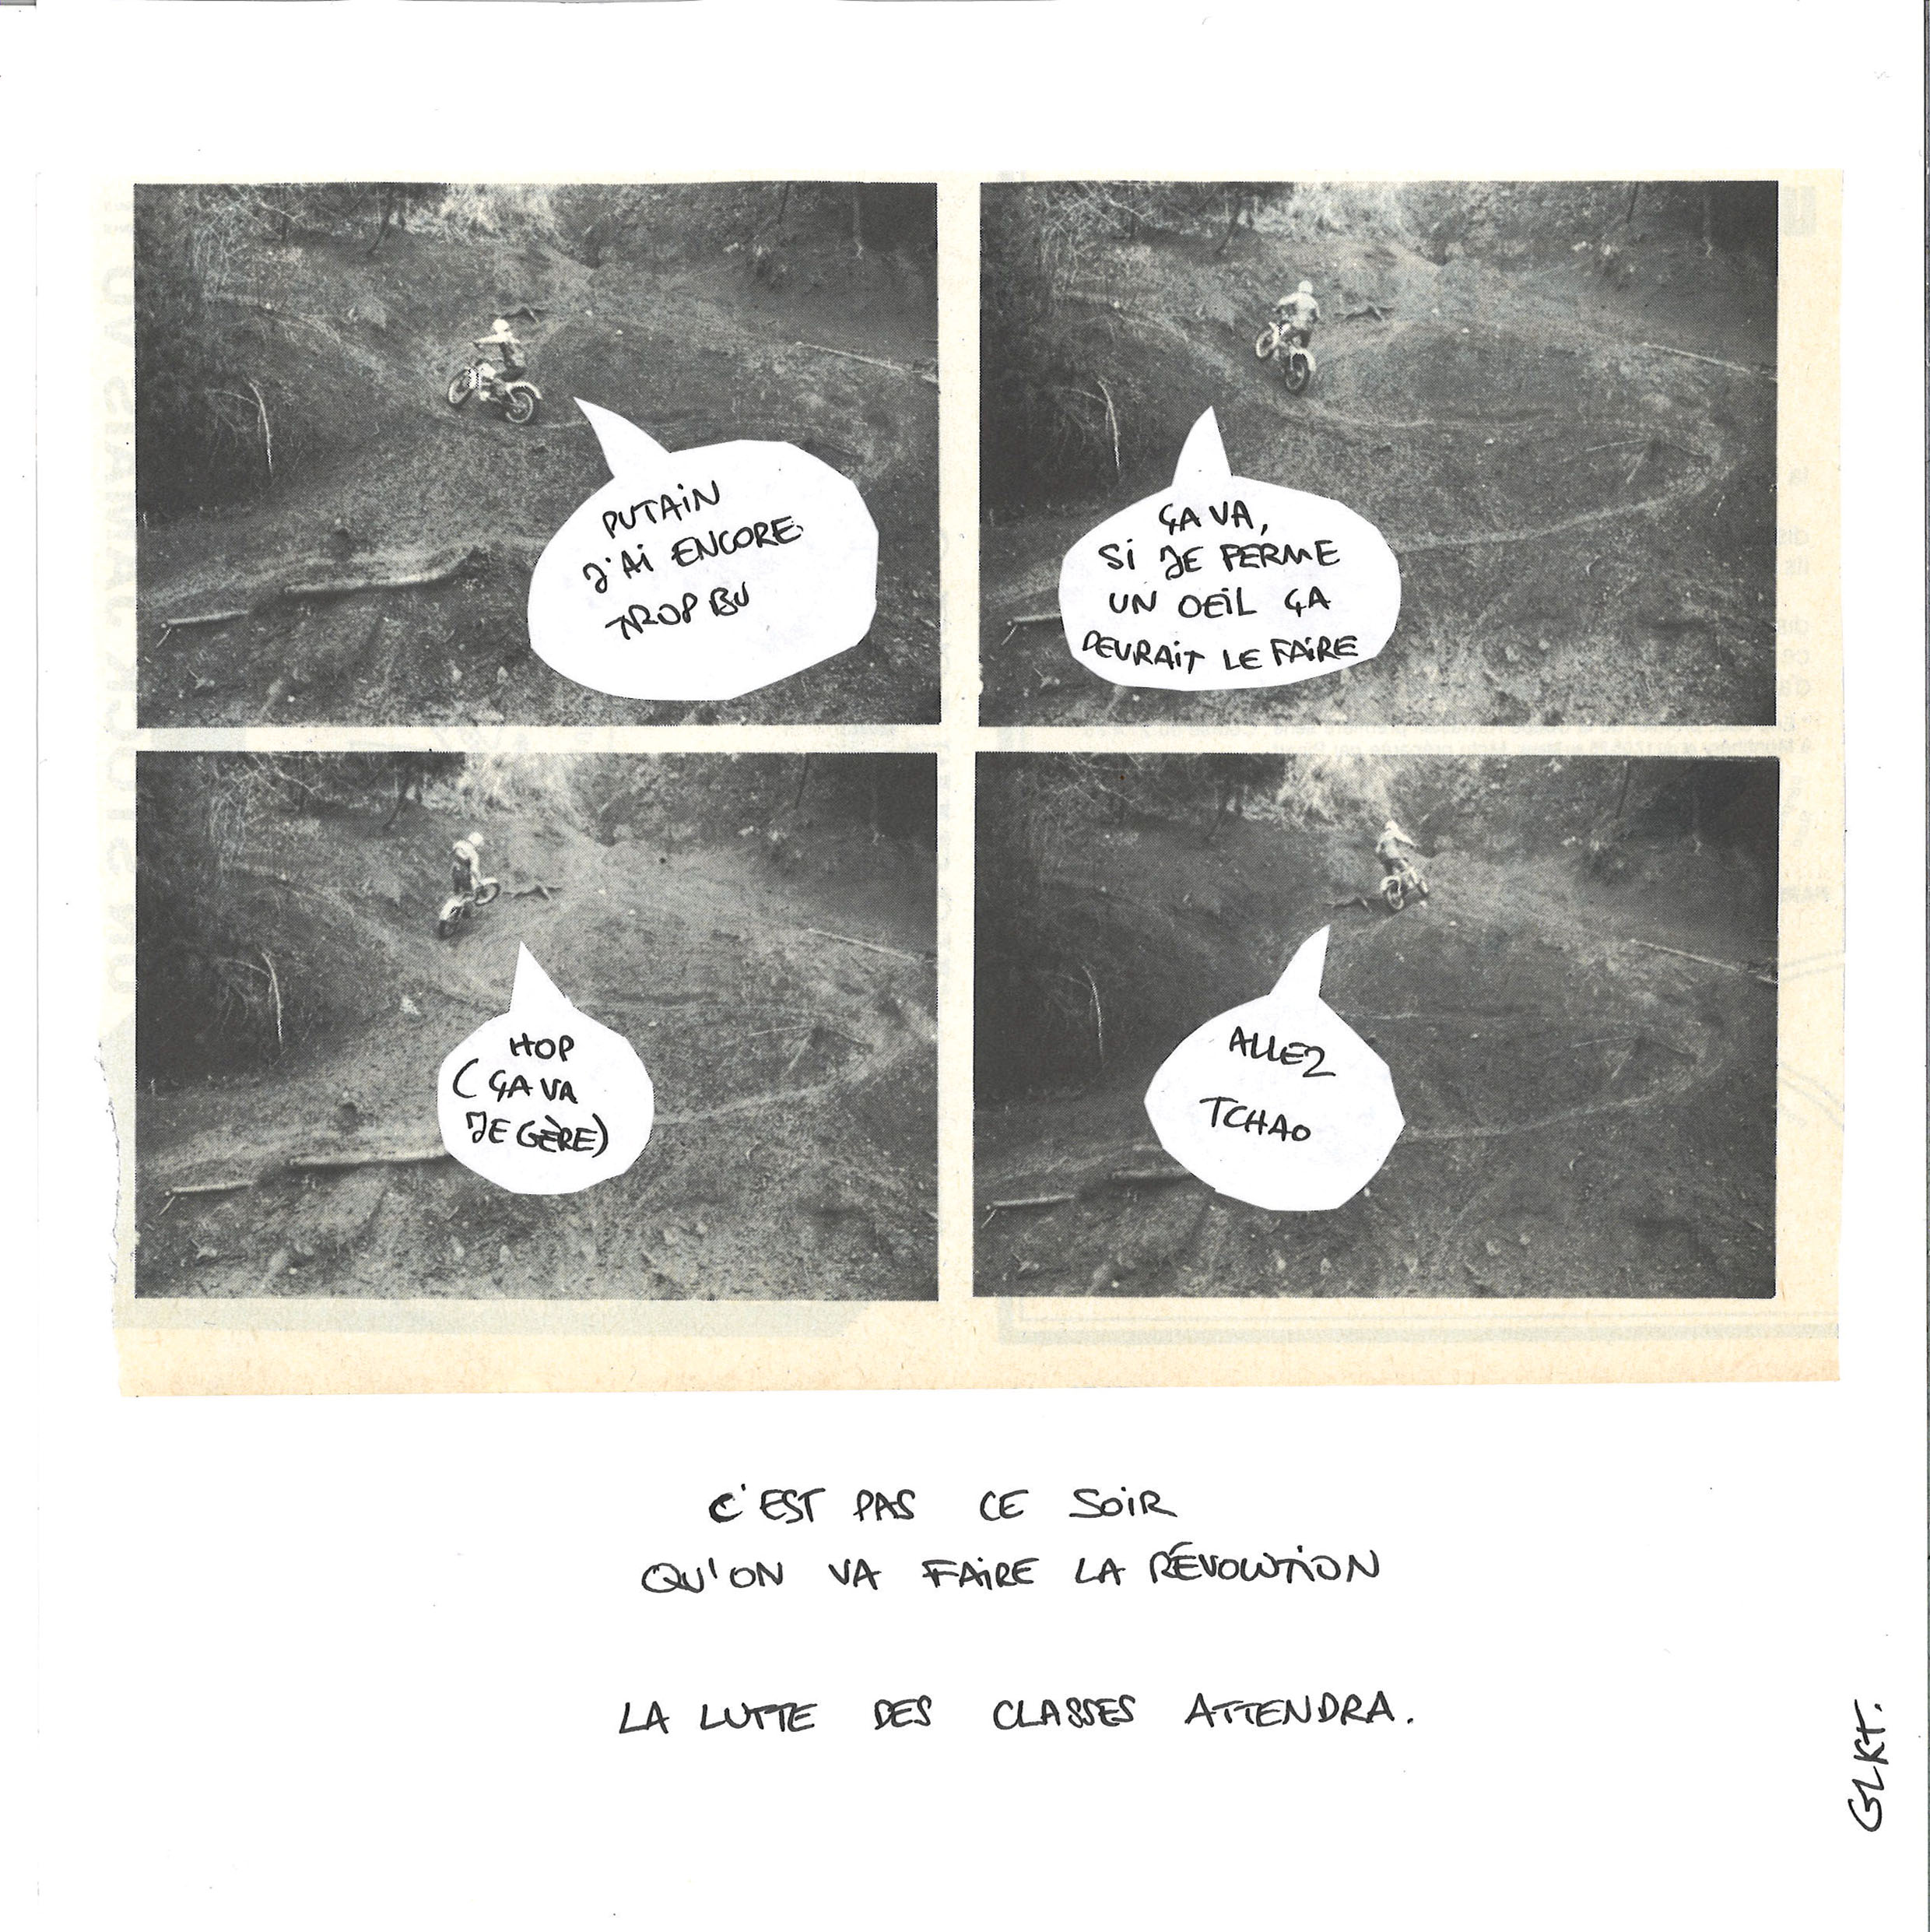 PUTAIN
J'AI ENCORE
TROP BU
ÇA VA,
SI JE FERME
UN OEIL ÇA
DEVRAIT LE FAIRE
HOP
(ÇA VA
JE GÈRE)
ALLEZ
TCHAO
C'EST PAS CE SOIR
QU'ON VA FAIRE LA RÉVOLUTION
LA LUTTE DES CLASSES ATTENDRA.
GLKT.